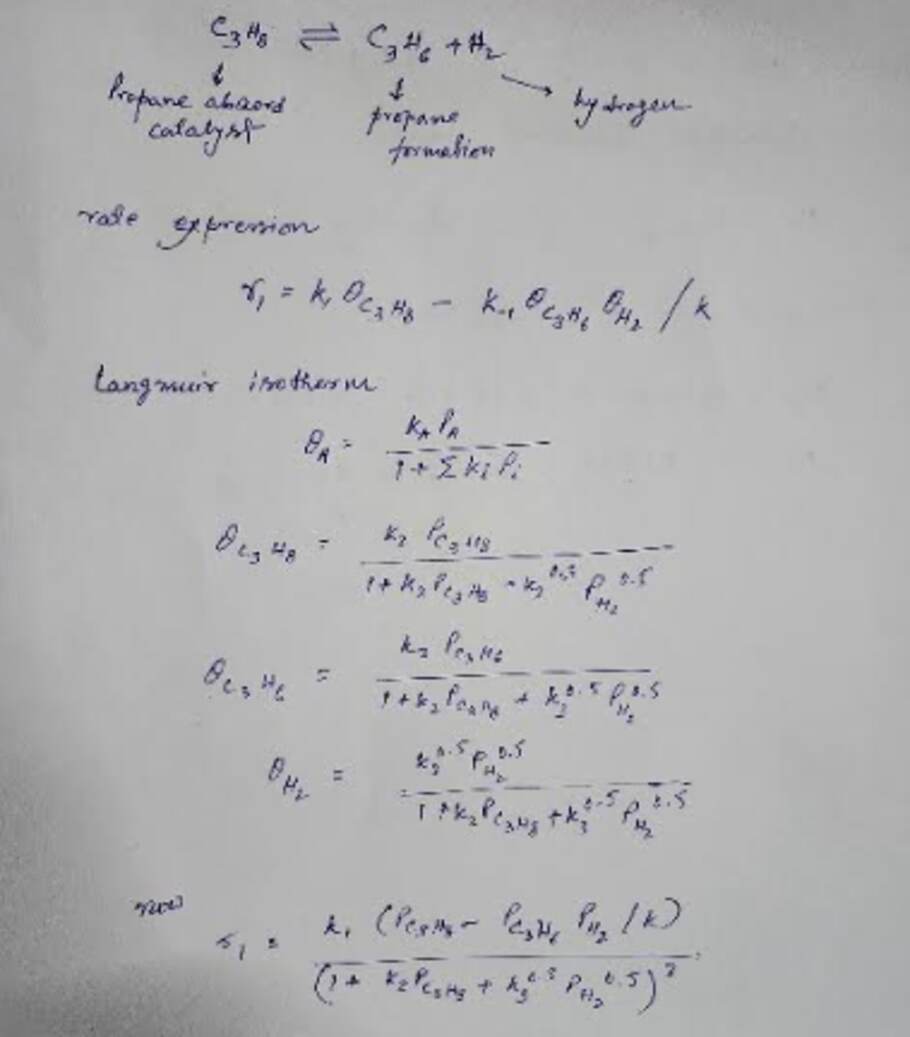 C₃H₈ ⇌ C₃H₆ + H₂
↓ ↓ → hydrogen
Propane absord propane
catalyst formation
rate expression
r₁ = k₁ θ_C₃H₈ - k₋₁ θ_C₃H₆ θ_H₂ / k
Langmuir isotherm
θ_A = k_A P_A / 1 + Σ k_i P_i
θ_C₃H₈ = k₂ P_C₃H₈ / 1 + k₂ P_C₃H₈ + k₃^0.5 P_H₂^0.5
θ_C₃H₆ = k₂ P_C₃H₆ / 1 + k₂ P_C₃H₈ + k₃^0.5 P_H₂^0.5
θ_H₂ = k₃^0.5 P_H₂^0.5 / 1 + k₂ P_C₃H₈ + k₃^0.5 P_H₂^0.5
now
r₁ = k₁ (P_C₃H₈ - P_C₃H₆ P_H₂ / k) / (1 + k₂ P_C₃H₈ + k₃^0.5 P_H₂^0.5)²